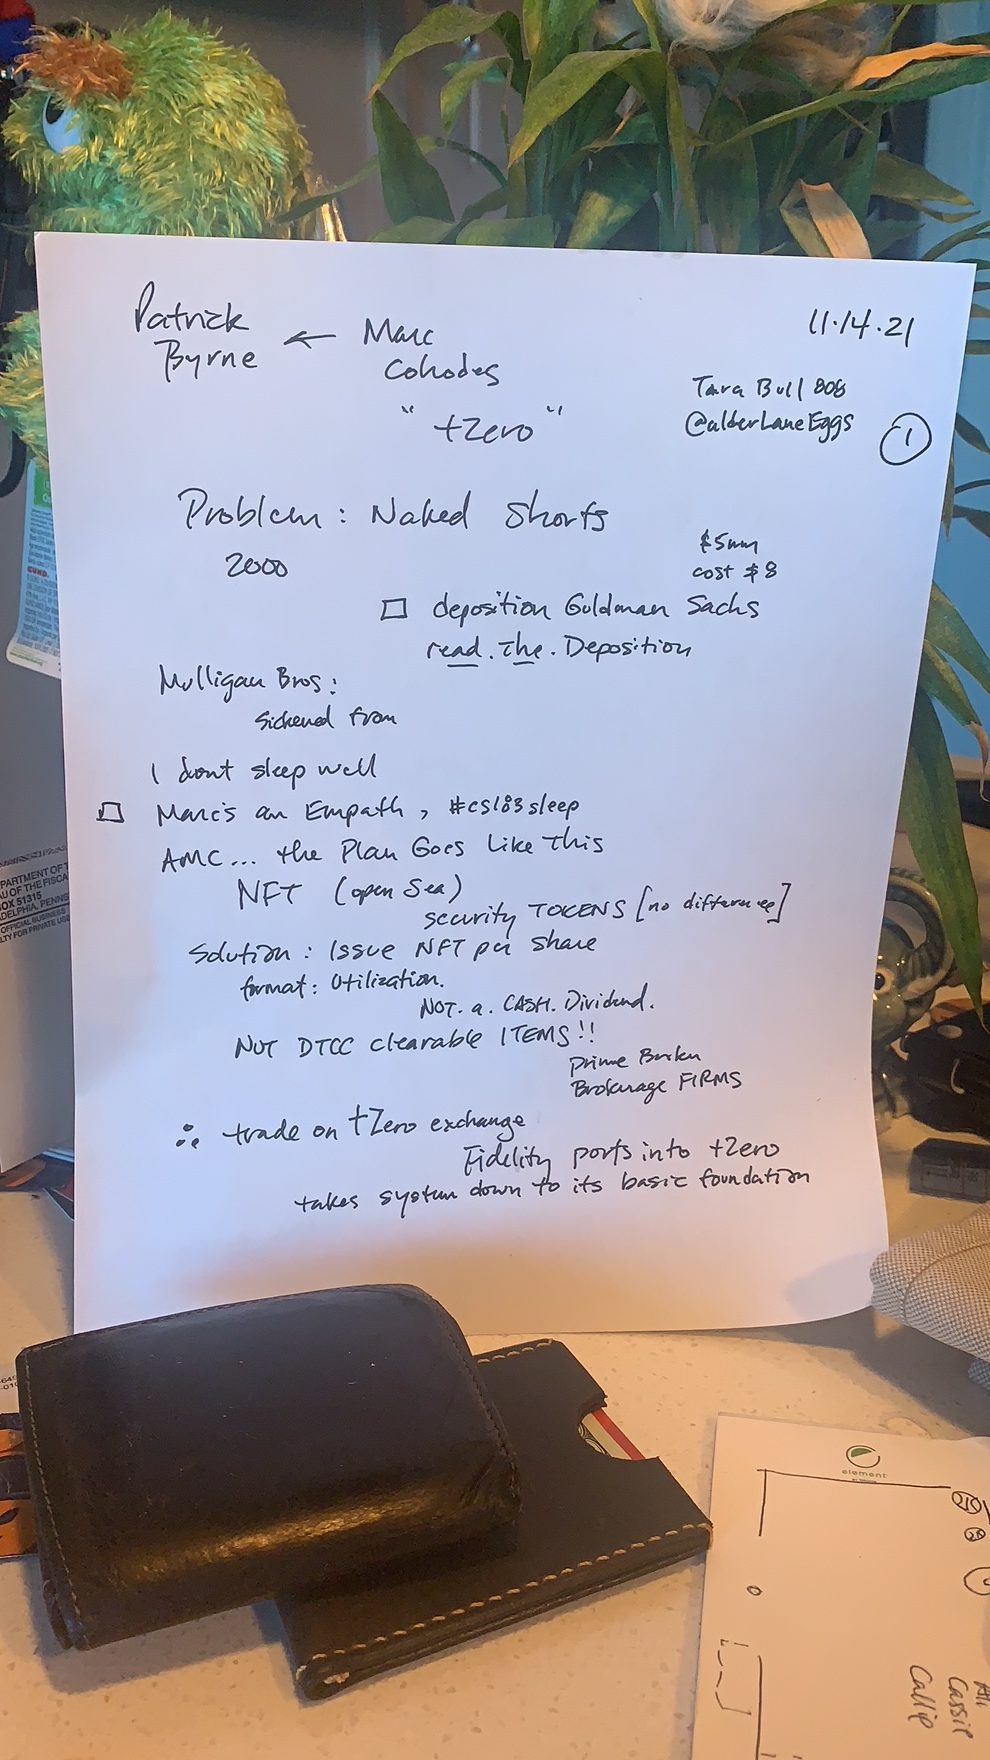 Patrick
Byrne ← Marc
Cohodes
"tZero"
11.14.21
Tara Bull 808
@alderLaneEggs
1
Problem: Naked Shorts
2000
$5mm
cost $8
deposition Goldman Sachs
read. The. Deposition
Mulligan Bros:
Sickened from
I dont sleep well
Marc's an Empath, #cs183sleep
AMC... the Plan Goes Like This
NFT (open Sea)
security TOKENS [no difference]
Solution: Issue NFT per share
format: Utilization.
NOT. a. CASH. Dividend.
NOT DTCC clearable ITEMS!!
Prime Broker
Brokerage FIRMS
∴ trade on tZero exchange
Fidelity ports into tZero
takes system down to its basic foundation
BOX 51315
element
Cassie
Callie